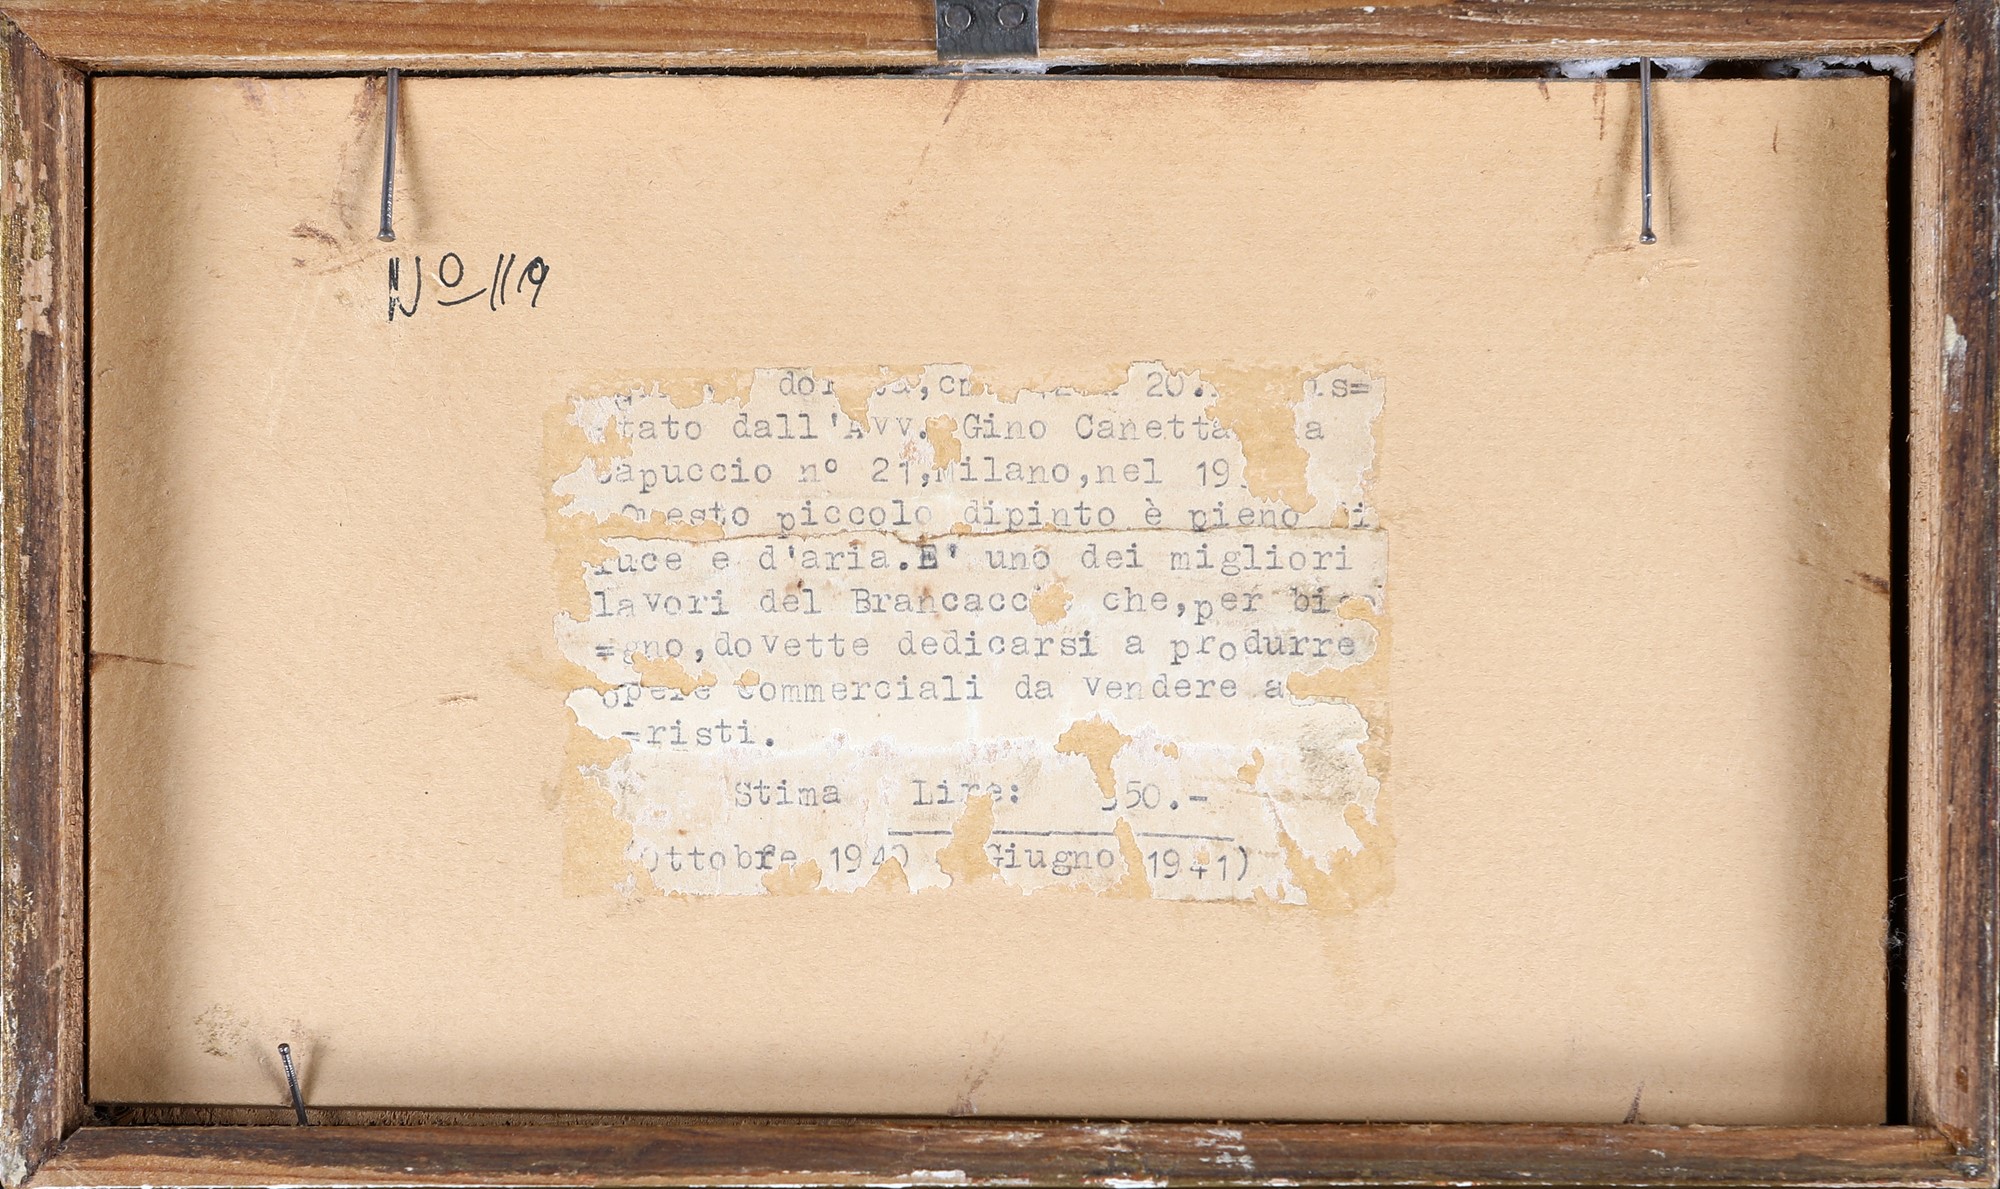 Nº 119
20.
tato dall'Avv. Gino Canetta
Capuccio nº 21, Milano, nel
Questo piccolo dipinto è pieno
luce e d'aria. E' uno dei migliori
lavori del Brancaccio che, per
=gno, dovette dedicarsi a produrre
opere commerciali da vendere a
=risti.
Stima Lire:
Ottobre 1940 Giugno 1941)